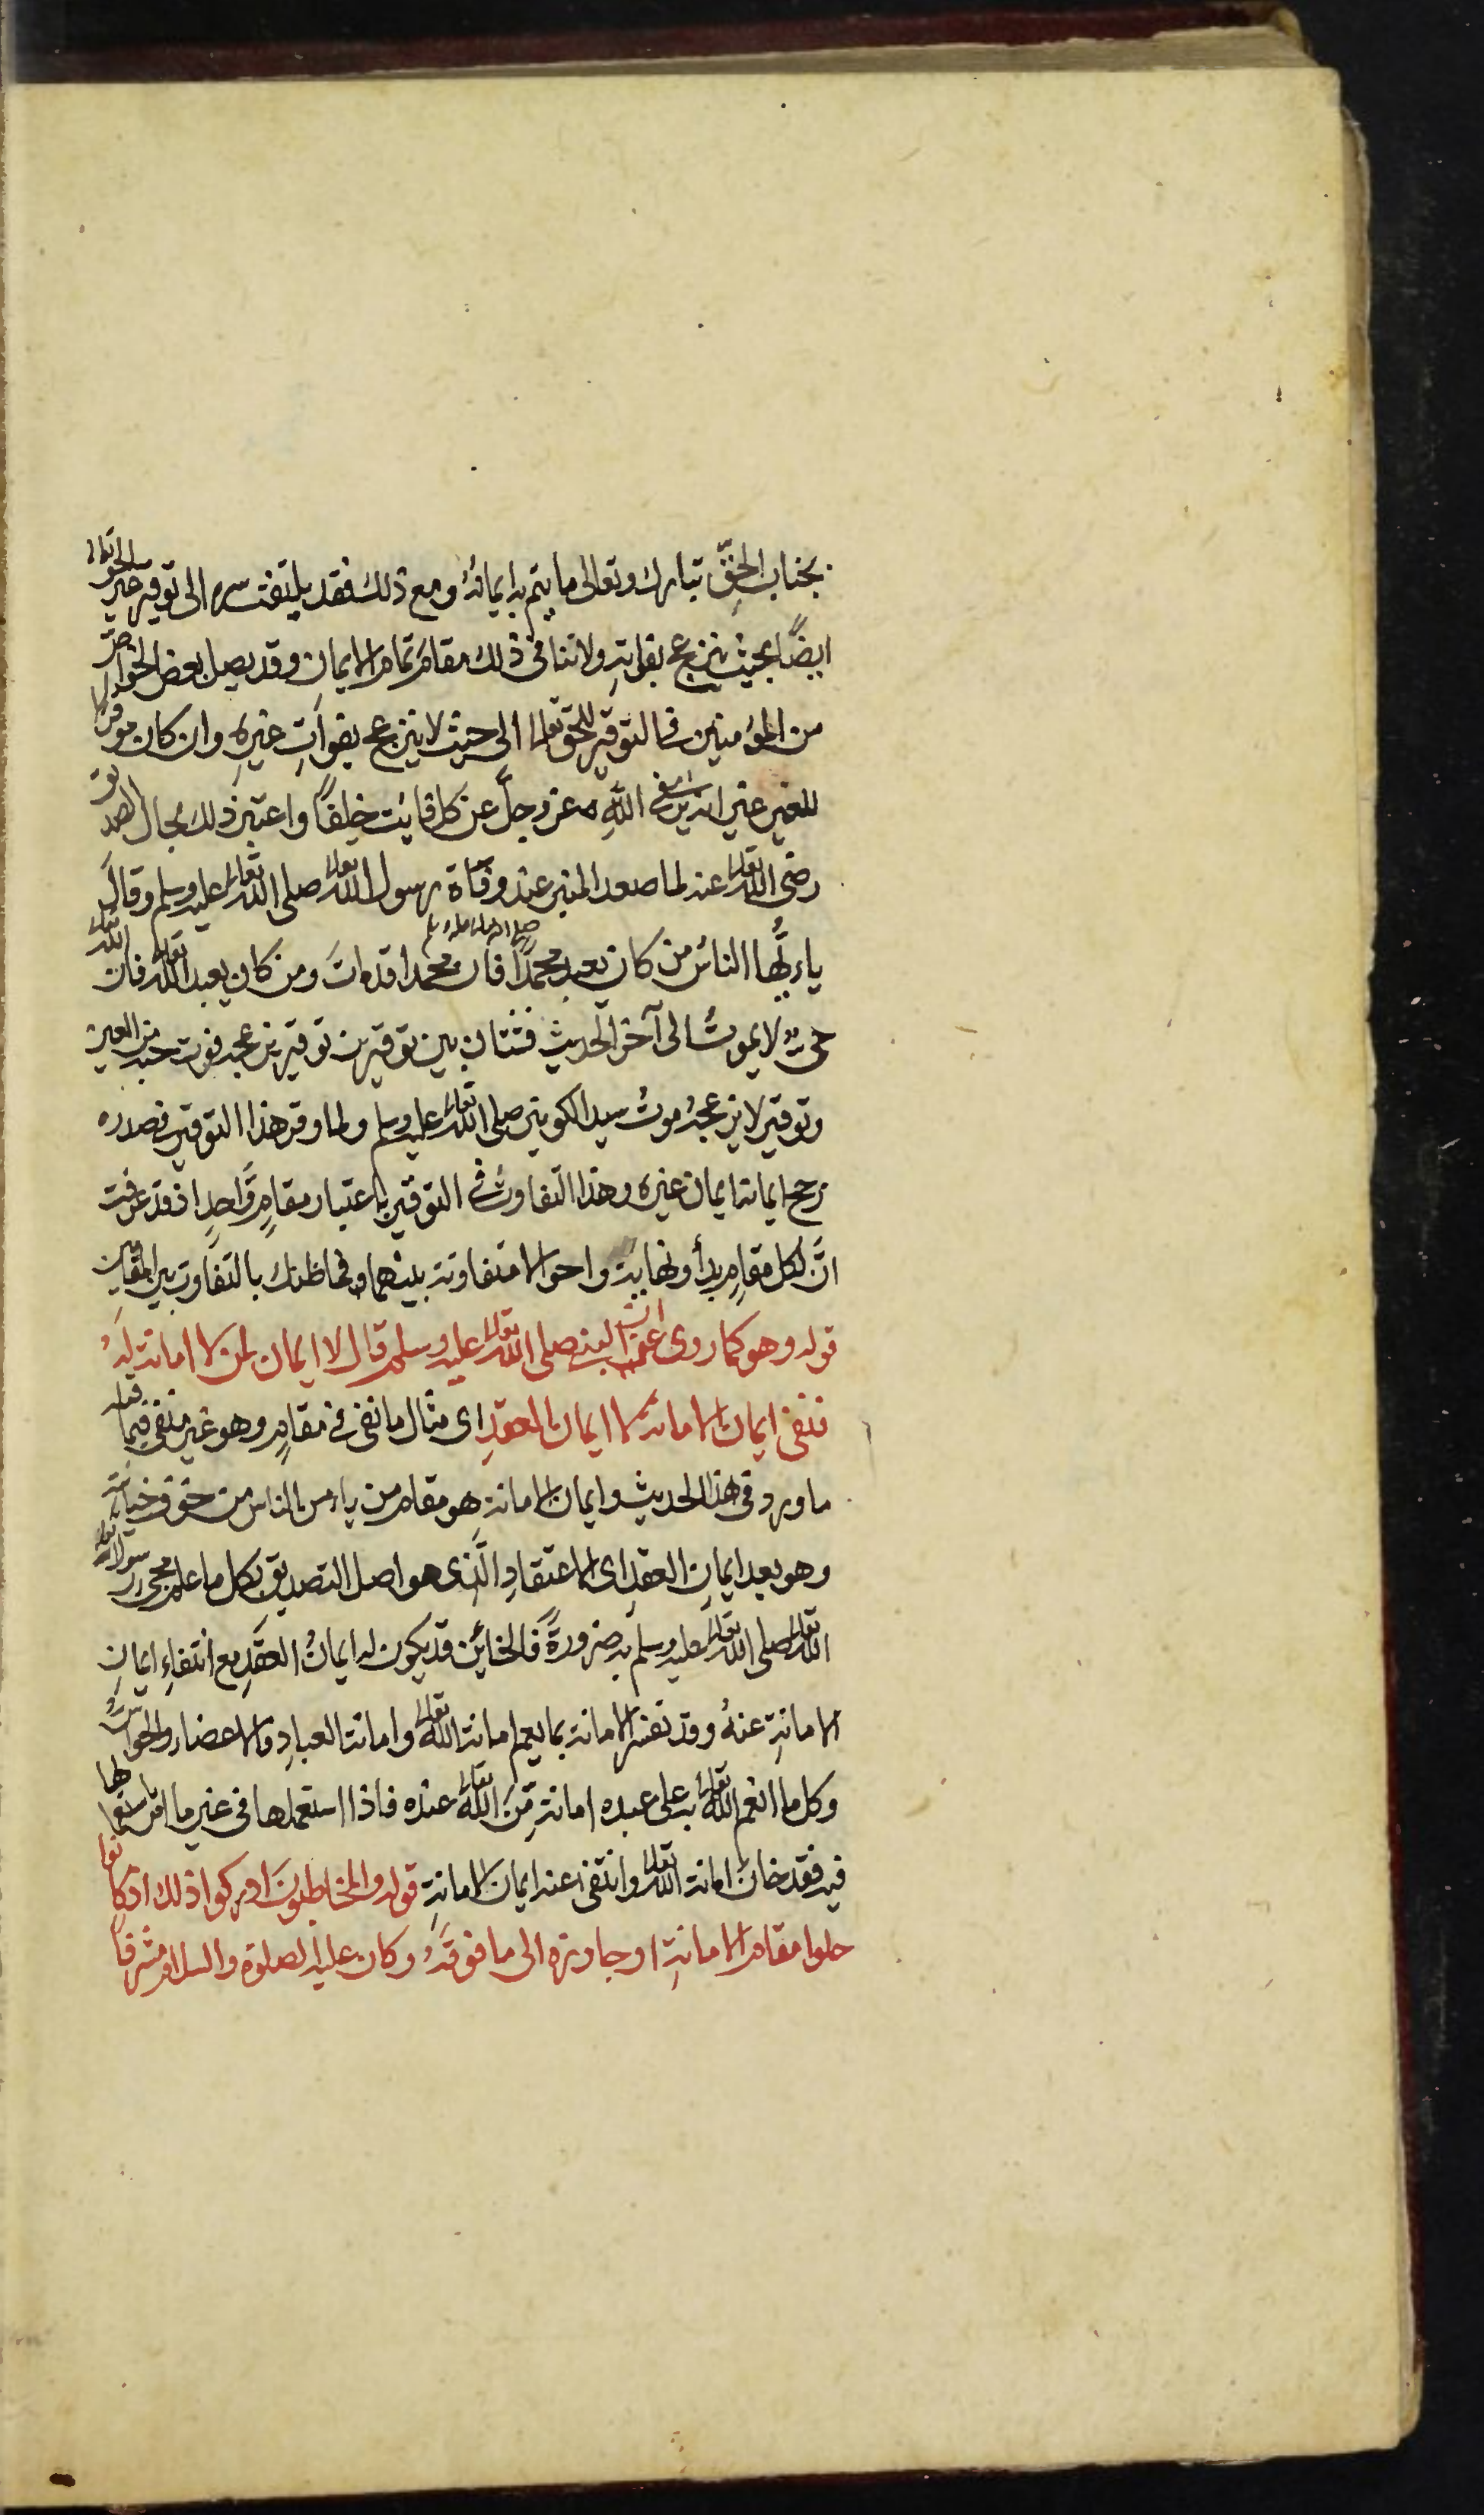 بجناب الحقّ تبارك وتعالى ما يتم به ايمانه ومع ذلك فقد يلتفت سره الى توقير غير الحق تعالى
ايضًا بحيث ينزعج بفواته ولا ينافى ذلك مقام تمام الايمان وقد يصل بعض الخواص
من المؤمنين فى التوقير للحق تعالى الى حيث لا ينزعج بفوات غيره وان كان موقرا
للغير غير ان فى الله عز وجل عن كل فائت خلفًا واعتبر ذلك بحال الصديق
رضى الله تعالى عنه لما صعد المنبر عند وفاة رسول الله تعالى صلى الله تعالى عليه وسلم وقال
يا ايها الناس من كان يعبد محمدًا صلى الله تعالى عليه وسلم فان محمدا قد مات ومن كان يعبد الله تعالى فان الله تعالى
حىٌّ لا يموت الى آخر الحديث فشتان بين توقيرين توقير يزعجه فوت حبة من العين
وتوقير لا يزعجه موت سيد الكونين صلى الله تعالى عليه وسلم ولما وقر هذا التوقير فى صدره
رجح ايمانه ايمان غيره وهذا التفاوت فى التوقير باعتبار مقامٍ واحدٍ اذ قد عرفت
انّ لكل مقامٍ بدأ ونهاية واحوالا متفاوتة بينهما وفما ظنك بالتفاوت بين المقامين
قوله وهو كما روى عن النبى صلى الله تعالى عليه وسلم انه قال لا ايمان لمن لا امانة له
فنفى ايمان الامانة لا ايمان العقد اى مثال ما نفى فى مقام وهو غير منفى فيما قبله
ما ورد فى هذا الحديث وايمان الامانة هو مقام من يأمن الناس من خوف خيانته
وهو بعد ايمان العقد اى الاعتقاد الّذى هو اصل التصديق بكل ما علم مجئ رسول
الله تعالى صلى الله تعالى عليه وسلم به ضرورةً فالخائن قد يكون له ايمانُ العقد مع انتفاءِ ايمانِ
الامانةِ عنهُ وقد تفسر الامانة بما يعم امانة الله تعالى وامانة العباد والاعضاء والحواس
وكل ما انعم الله تعالى به على عبده امانة من الله تعالى عنده فاذا استعملها فى غير ما امر باستعمالها
فيه فقد خان امانة الله تعالى وانتفى عنه ايمان الامانة قوله والمخاطبون ادركوا ذلك اذ كانوا
حلوا مقام الامانة او جاوزه الى ما فوقه وكان عليه الصلوة والسلام مشرفا